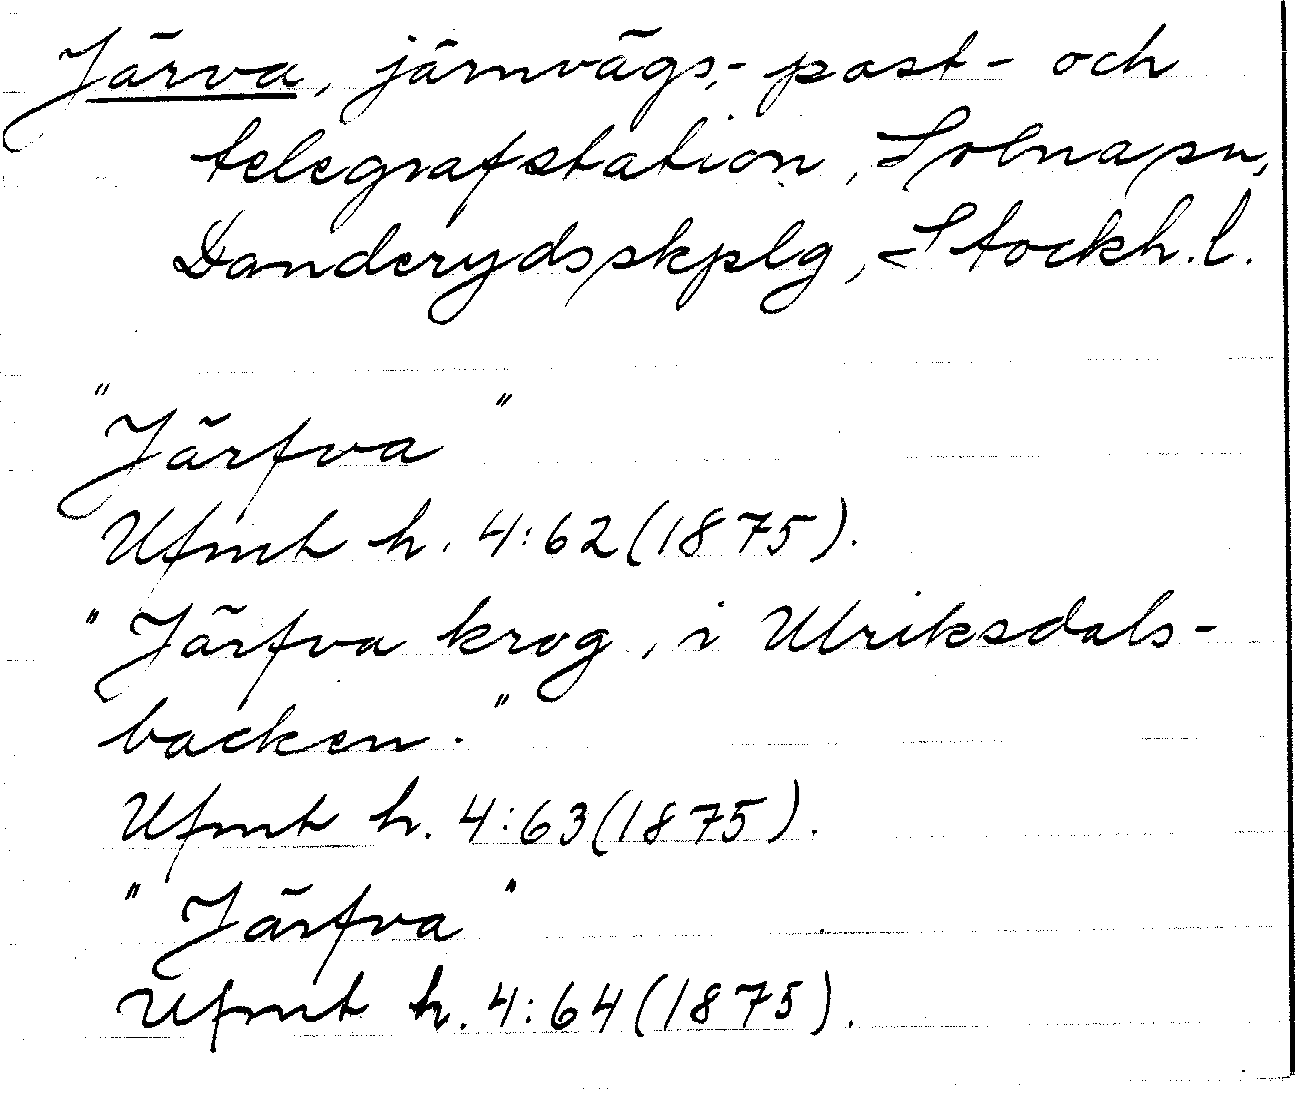 Järva, järnvägs-, post- och
telegrafstation, Solna sn,
Danderyds skplg, Stockh. l.
"Järfva"
Ufmt h. 4:62 (1875).
"Järfva krog, i Ulriksdals-
backen."
Ufmt h. 4:63 (1875).
"Järfva"
Ufmt h. 4:64 (1875).